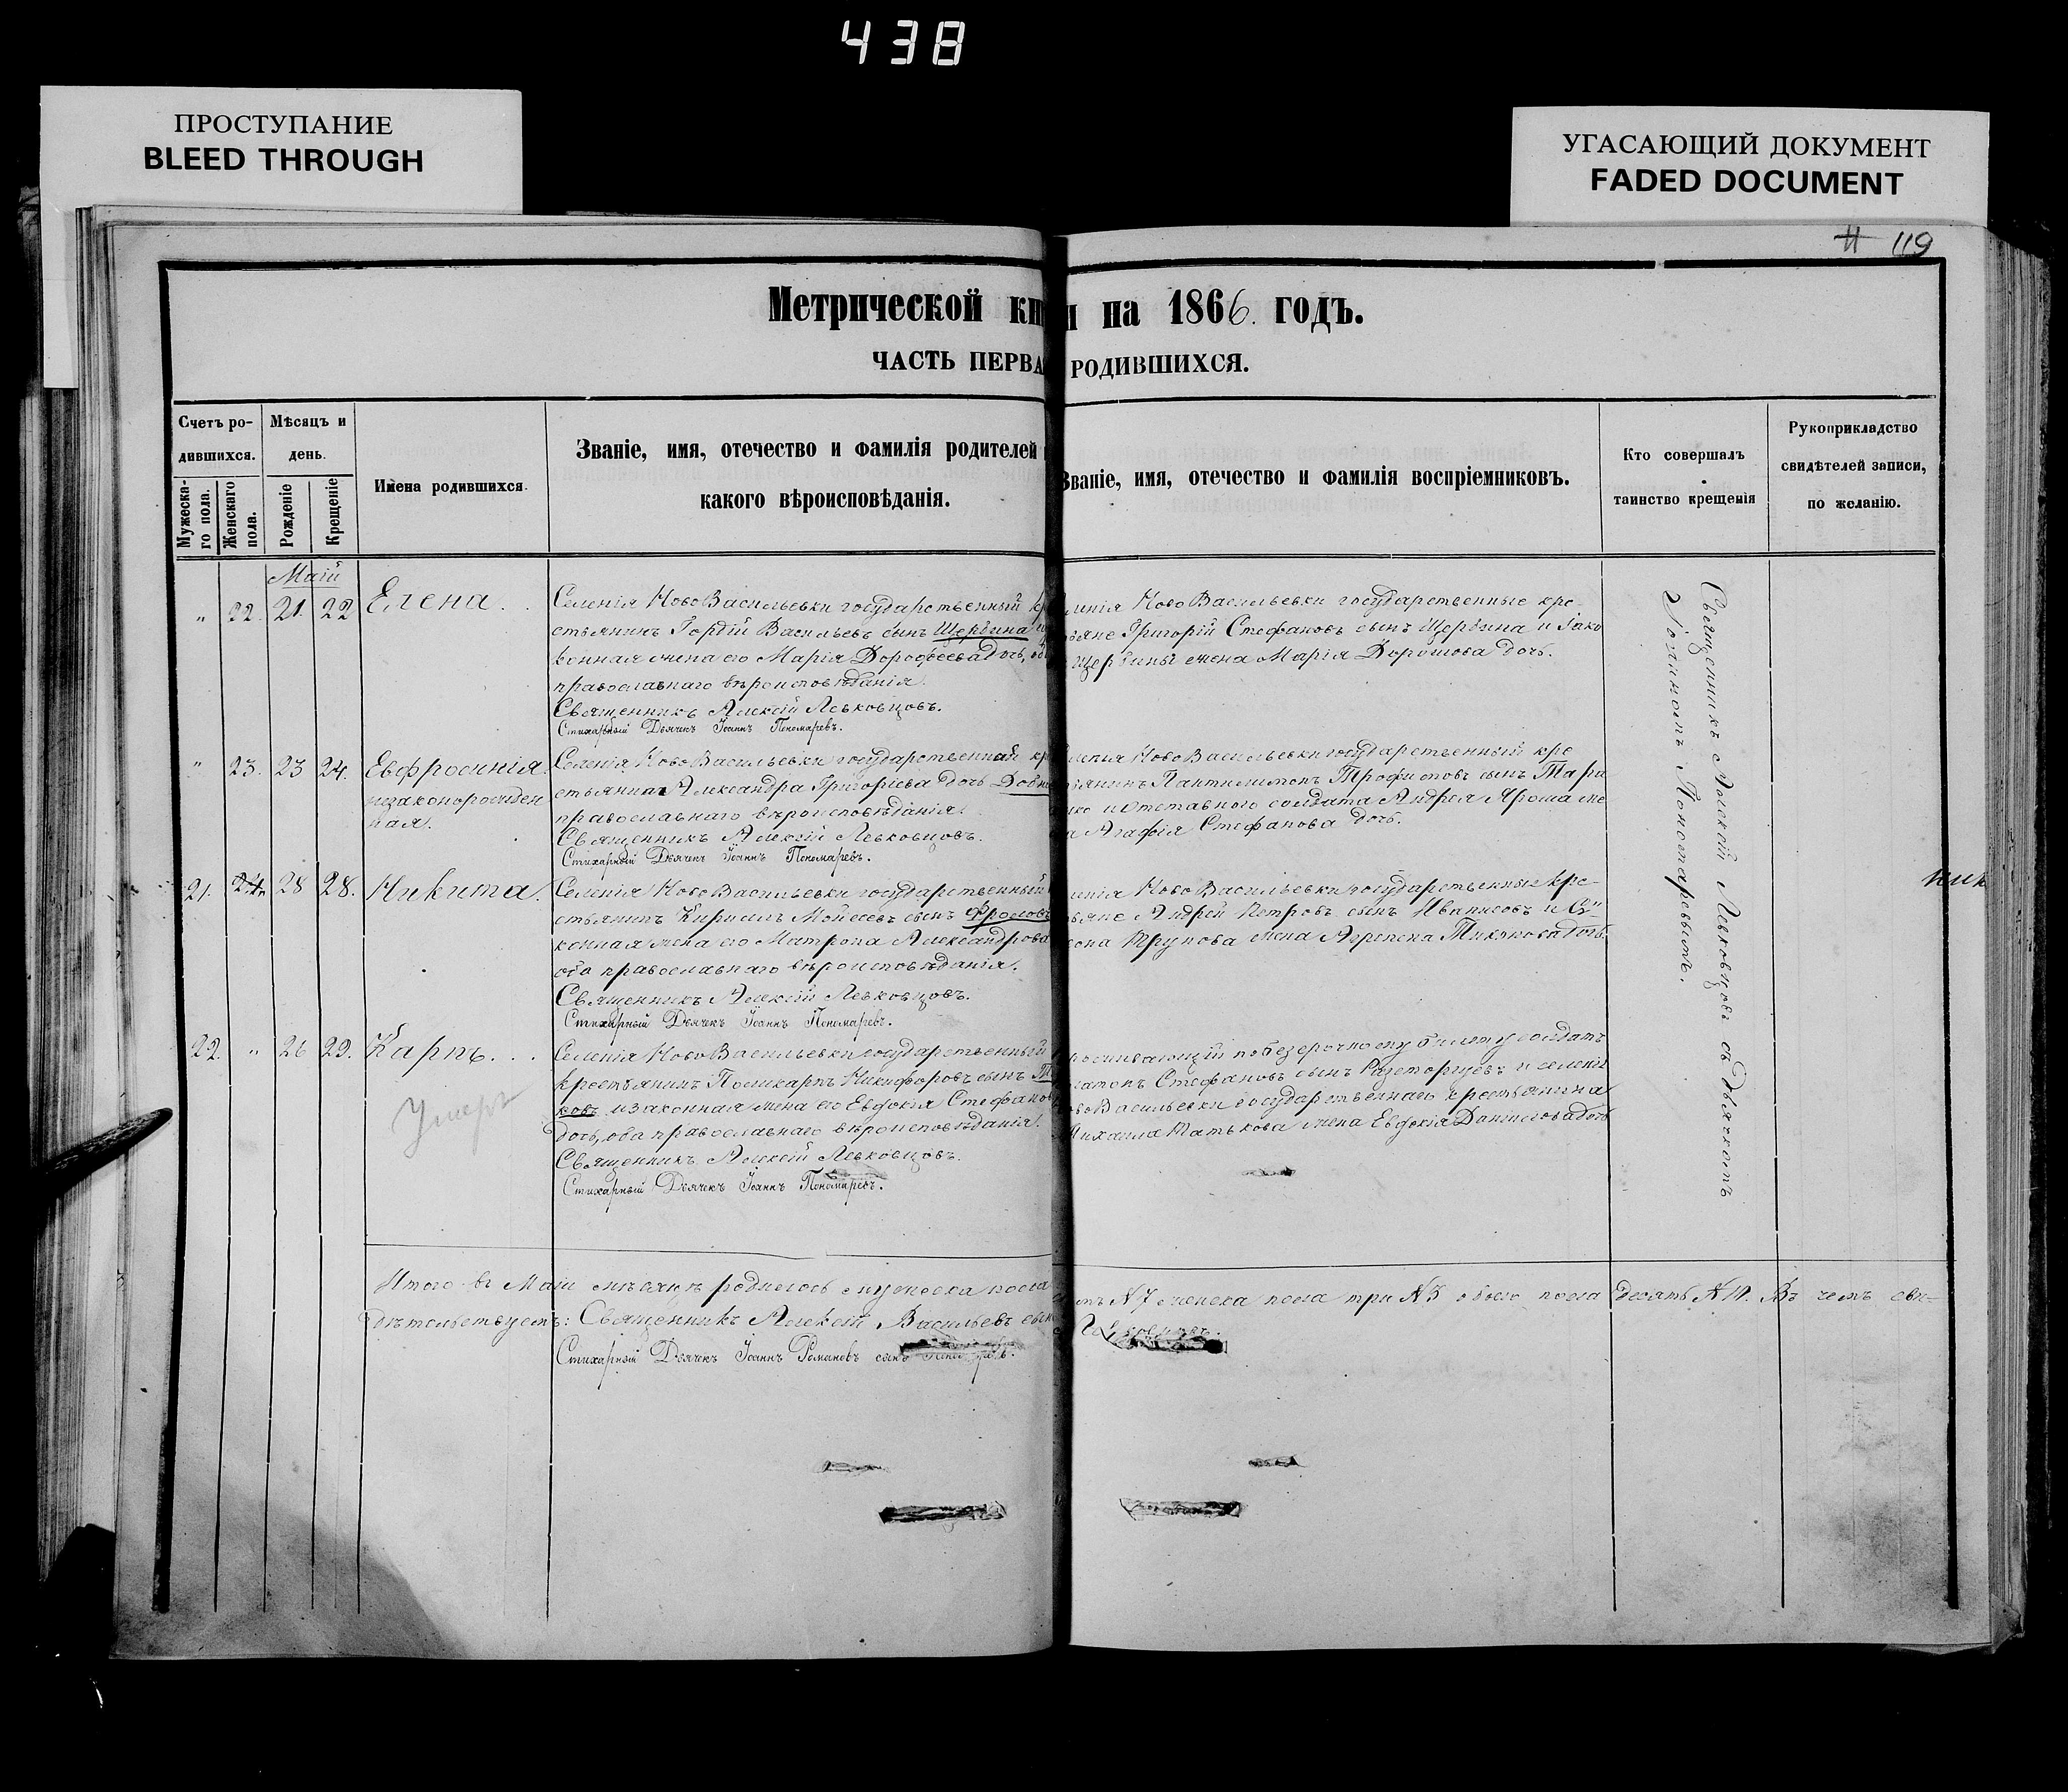 438
ПРОСТУПАНИЕ
BLEED THROUGH
УГАСАЮЩИЙ ДОКУМЕНТ
FADED DOCUMENT
119
Метрической кни
и на 1866. годъ.
ЧАСТЬ ПЕРВА
РОДИВШИХСЯ.
Счетъ ро-
дившихся.
Мужеска-
го пола.
Женскаго
пола.
Мѣсяцъ и
день.
Рожденіе
Крещеніе
Имена родившихся.
Званіе, имя, отечество и фамилія родителей
какого вѣроисповѣданія.
Званіе, имя, отечество и фамилія воспріемниковъ.
Кто совершалъ
таинство крещенія
Рукоприкладство
свидѣтелей записи,
по желанію.
Маій
" 22. 21. 22 Елена. . .
Селенія НовоВасильевки государственный кр
стьянинъ Гордій Васильевъ сынъ Щербина и
конная жена его Марія Дорофеева дочь, об
православнаго вѣроисповѣданія.
Священникъ Алексій Левковцовъ.
Стихарный Дьячекъ Іоаннъ Пономаревъ.
ленія НовоВасильевки государственные кре-
тьяне Григорій Стефановъ сынъ Щербина и Іако
Щербины жена Марія дочь.
" 23. 23 24. Евфросинія.
незаконорожден
ная.
Селенія НовоВасильевки государственная кре
стьянка Александра Григоріева дочь
православнаго вѣроисповѣданія.
Священникъ Алексій Левковцовъ.
Стихарный Дьячекъ Іоаннъ Пономаревъ.
ленія НовоВасильевки государственный кре
тьянинъ Пантилимонъ Трофимовъ сынъ Тара
нко и отставнаго солдата Андрея Ярома же
на Агафія Стефанова дочь.
21. 24. 28 28. Никита.
Селенія НовоВасильевки государственный
стьянинъ Кириллъ Мойсеевъ сынъ Фроловъ
конная жена его Матрона Александрова
оба православнаго вѣроисповѣданія.
Священникъ Алексій Левковцовъ.
Стихарный Дьячекъ Іоаннъ Пономаревъ.
ленія НовоВасильевки государственные кре-
тьяне Андрей Петровъ сынъ и Си-
жена дочь.
22. " 26 29. Карпъ. . .
Умеръ
Селенія НовоВасильевки государственный
крестьянинъ Поликарпъ Никифоровъ сынъ
ковъ и законная жена его Евдокія Стефанов
дочь, оба православнаго вѣроисповѣданія.
Священникъ Алексій Левковцовъ.
Стихарный Дьячекъ Іоаннъ Пономаревъ.
роживающій по безсрочному билету солдатъ
Стефановъ сынъ и селенія
овоВасильевки государственнаго крестьянина
Михаила жена Евдокія Даниилова дочь
Священникъ Алексій Левковцовъ съ Дьячкомъ
Іоанномъ Пономаревымъ.
ник
Итого въ Маіи мѣсяцѣ родилось мужеска пола
мъ №7 женска пола три №3 обоего пола десять №10. Въ чемъ сви-
дѣтельствуемъ: Священникъ Алексій Васильевъ сынъ
Левковцовъ.
Стихарный Дьячекъ Іоаннъ Романовъ сынъ Пономаревъ.